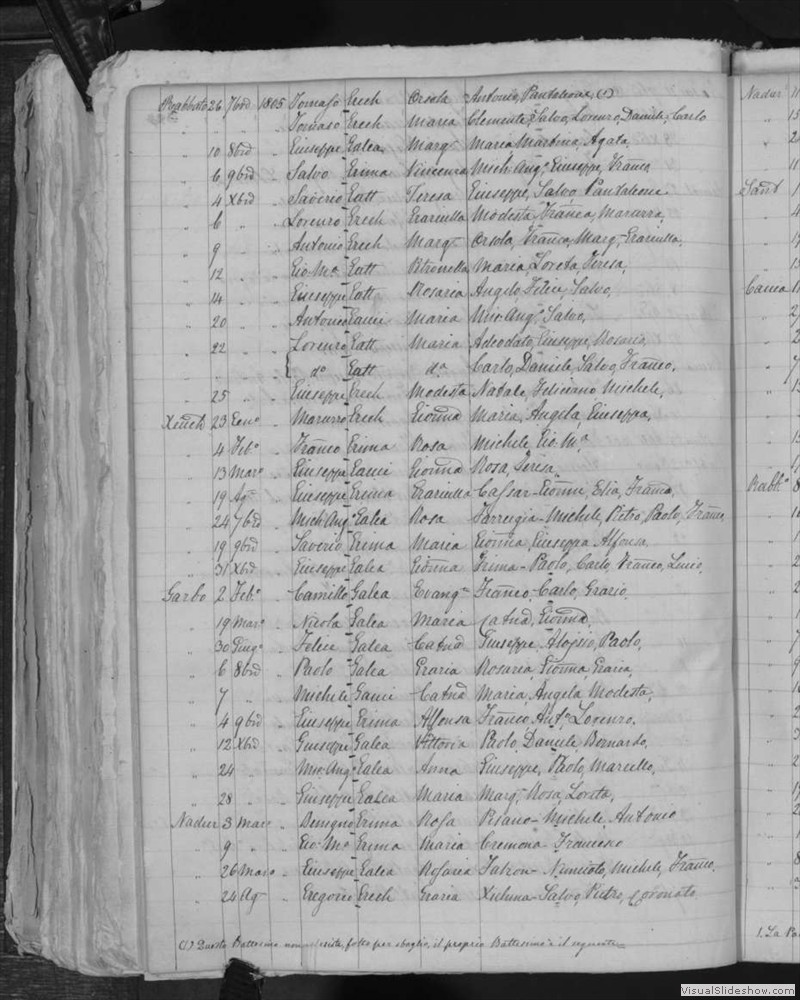 Rabbato 26 7bre 1805 Tomaso Grech Orsola Antonio, Pantaleone (1)
" " " Tomaso Grech Maria Clemente, Salvo, Lorenzo, Daniele, Carlo
" 10 8bre " Giuseppe Galea Marg.a Maria Martina, Agata,
" 6 9bre " Salvo Grima Vincenza Mich: Ang.o, Giuseppe, Franco
" 4 Xbre " Saverio Gatt Teresa Giuseppe, Salvo, Pantaleone
" 6 " " Lorenzo Grech Graziulla Modesta, Franca,
" 9 " " Antonio Grech Marg.a Orsola, Franca, Marg.a, Graziulla,
" 12 " " Gio: Ma. Gatt Petronella Maria, Loreta, Teresa,
" 14 " " Giuseppe Gatt Rosaria Angelo, Felice, Salvo,
" 20 " " Antonio Gauci Maria Mic: Ang.o, Salvo,
" 22 " " Lorenzo Gatt Maria Adeodato, Giuseppe, Rosario
" " " do Gatt da Carlo, Daniele, Salvo, Franco,
" 25 " " Giuseppe Grech Modesta Natale, Feliciano, Michele,
Xeuch 23 Gen.o " Grech Gionna Maria, Angela, Giuseppa,
" 4 Feb.o " Franco Grima Rosa Michele, Gio: Ma
" 13 Marzo " Giuseppe Gauci Gionna Rosa, Teresa,
" 19 Ag.o " Giuseppe Grima Graziulla Cassar - Gionni, Elia, Franca,
" 24 7bre " Mich: Ang.o Galea Rosa Farrugia - Michele, Pietro, Paolo, Franco,
" 19 9bre " Saverio Grima Maria Gionna, Giuseppa Alfonsa
" 31 Xbre " Giuseppe Galea Gionna Grima - Paolo, Carlo, Franco, Lucio,
Garbo 2 Feb.o " Camillo Galea Evang.a Franco, Carlo, Grazio,
" 19 Marzo " Nicola Galea Maria Catna, Gionna,
" 30 Giug.o " Felice Galea Catna Giuseppe, Aloisio, Paolo,
" 6 8bre " Paolo Galea Grazia Rosaria, Gionna, Grazia,
" 7 " " Michele Gauci Catna Maria, Angela, Modesta,
" 4 9bre " Giuseppe Grima Alfonsa Franco, Ant.o, Lorenzo,
" 12 Xbre " Giuseppe Galea Vittoria Paolo, Daniele, Bernardo,
" 24 " " Mic: Ang.o Galea Anna Giuseppe, Paolo, Marcello,
" 28 " " Giuseppe Galea Maria Marg.a, Rosa, Loreta,
Nadur 3 Marzo " Benigno Grima Rosa Michele, Antonio
" 9 " " Gio: Ma. Grima Maria Cremona - Francesco
" 26 Marzo " Giuseppe Galea Rosaria Michele, Franco,
" 24 Ag.o " Gregorio Grech Grazia Xicluna - Salvo, Pietro, Coronato
(1) Questo Battesimo non esiste, fatto per sbaglio, il proprio Battesimo è il seguente
Nadur
Sant
Caccia
Rabb.o
1. La
VisualSlideshow.com